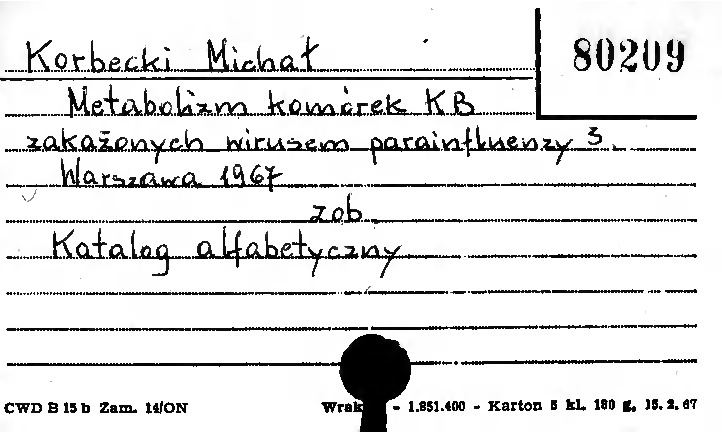 Korbecki Michał
80209
Metabolizm komórek KB
zakażonych wirusem parainfluenzy 3.
Warszawa 1967
zob.
Katalog alfabetyczny
CWD B 15 b Zam. 14/ON - 1.851.400 - Karton 5 kl. 180 g, 15. 2. 67